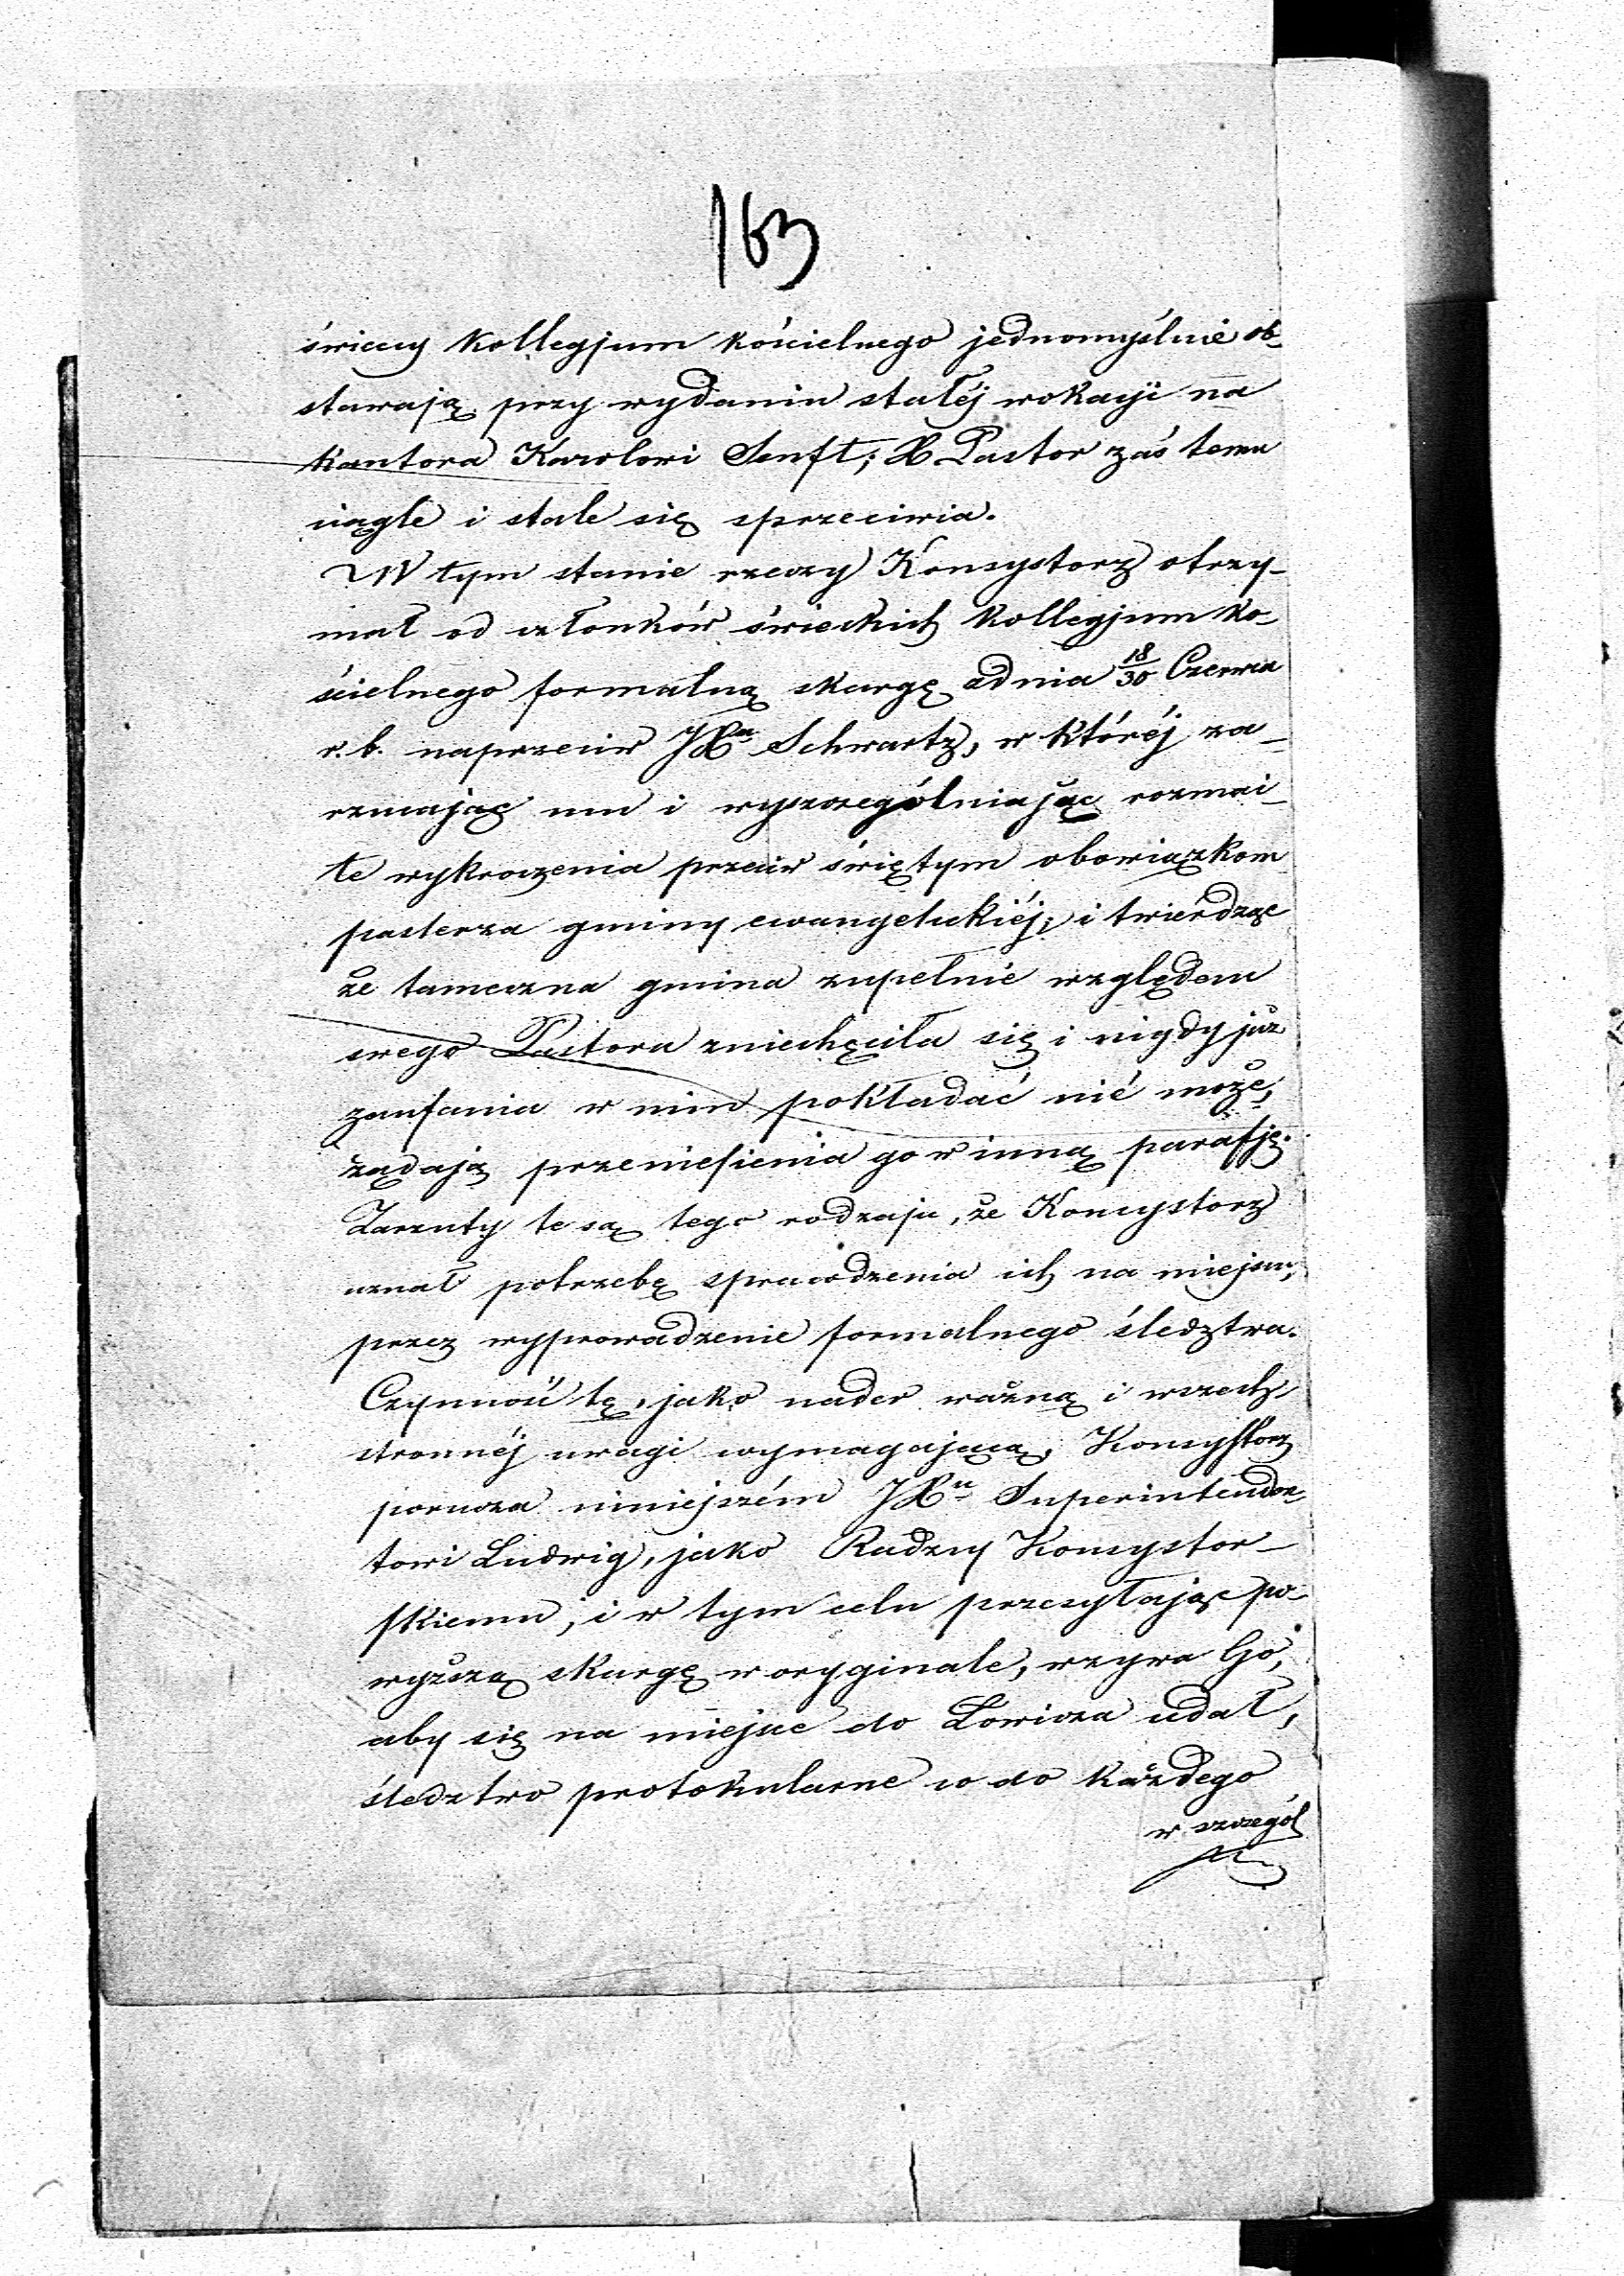 163
świeccy Kollegjum kościelnego jednomyślnie ob-
stawają przy wydaniu stałéj wokacyi na
kantora Karolowi Senft; X Pastor zaś temu
ciągle i stale się sprzeciwia.
W tym stanie rzeczy Konsystorz otrzy-
mał od członków świeckich Kollegjum ko-
ścielnego formalną skargę z dnia 18/30 Czerwca
r. b. naprzeciw JXa Schwartz, w któréj za-
rzucając mu i wyszczególniając rozmai-
te wykroczenia przeciw świętym obowiązkom
pasterza gminy ewangelickiéj, i twierdząc
że tameczna gmina zupełnie względem
swego Pastora zniechęciła się i nigdy już
zaufania w nim pokładać nié może,
żądają przeniesienia go w inną parafję.
Zarzuty te są tego rodzaju, że Konsystorz
uznał potrzebę sprawdzenia ich na miejscu,
przez wyprowadzenie formalnego śledztwa.
Czynność tę, jako nader ważną i wszech
stronnéj uwagi wymagającą, Konsystorz
porucza niniejszém JXu Superintenden-
towi Ludwig, jako Radzcy Konsystor-
skiemu, i w tym celu przesyłając po-
wyższą skargę w oryginale, wzywa Go,
aby się na miejsce do Łowicza udał,
śledztwo protokularne co do każdego
w szczegól